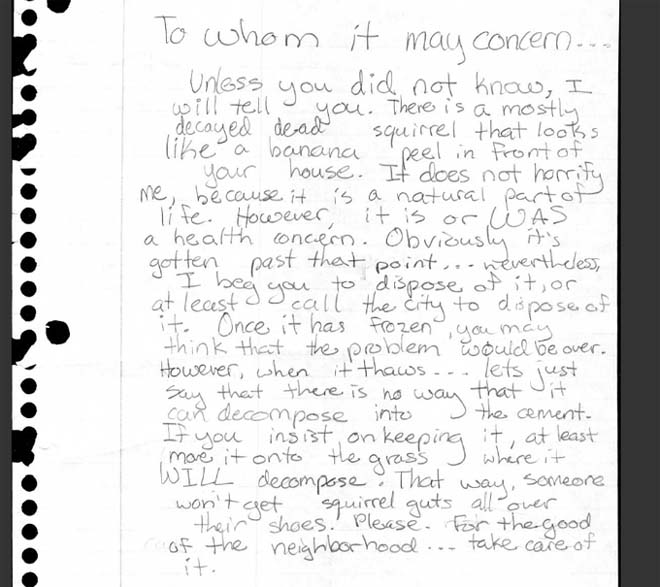 To whom it may concern...
Unless you did not know, I
will tell you. There is a mostly
decayed dead squirrel that looks
like a banana peel in front of
your house. It does not horrify
me, because it is a natural part of
life. However, it is or WAS
a health concern. Obviously it's
gotten past that point... nevertheless,
I beg you to dispose of it, or
at least call the city to dispose of
it. Once it has frozen, you may
think that the problem would be over.
However, when it thaws... lets just
say that there is no way that it
can decompose into the cement.
If you insist on keeping it, at least
move it onto the grass where it
WILL decompose. That way, someone
won't get squirrel guts all over
their shoes. Please. For the good
of the neighborhood... take care of
it.